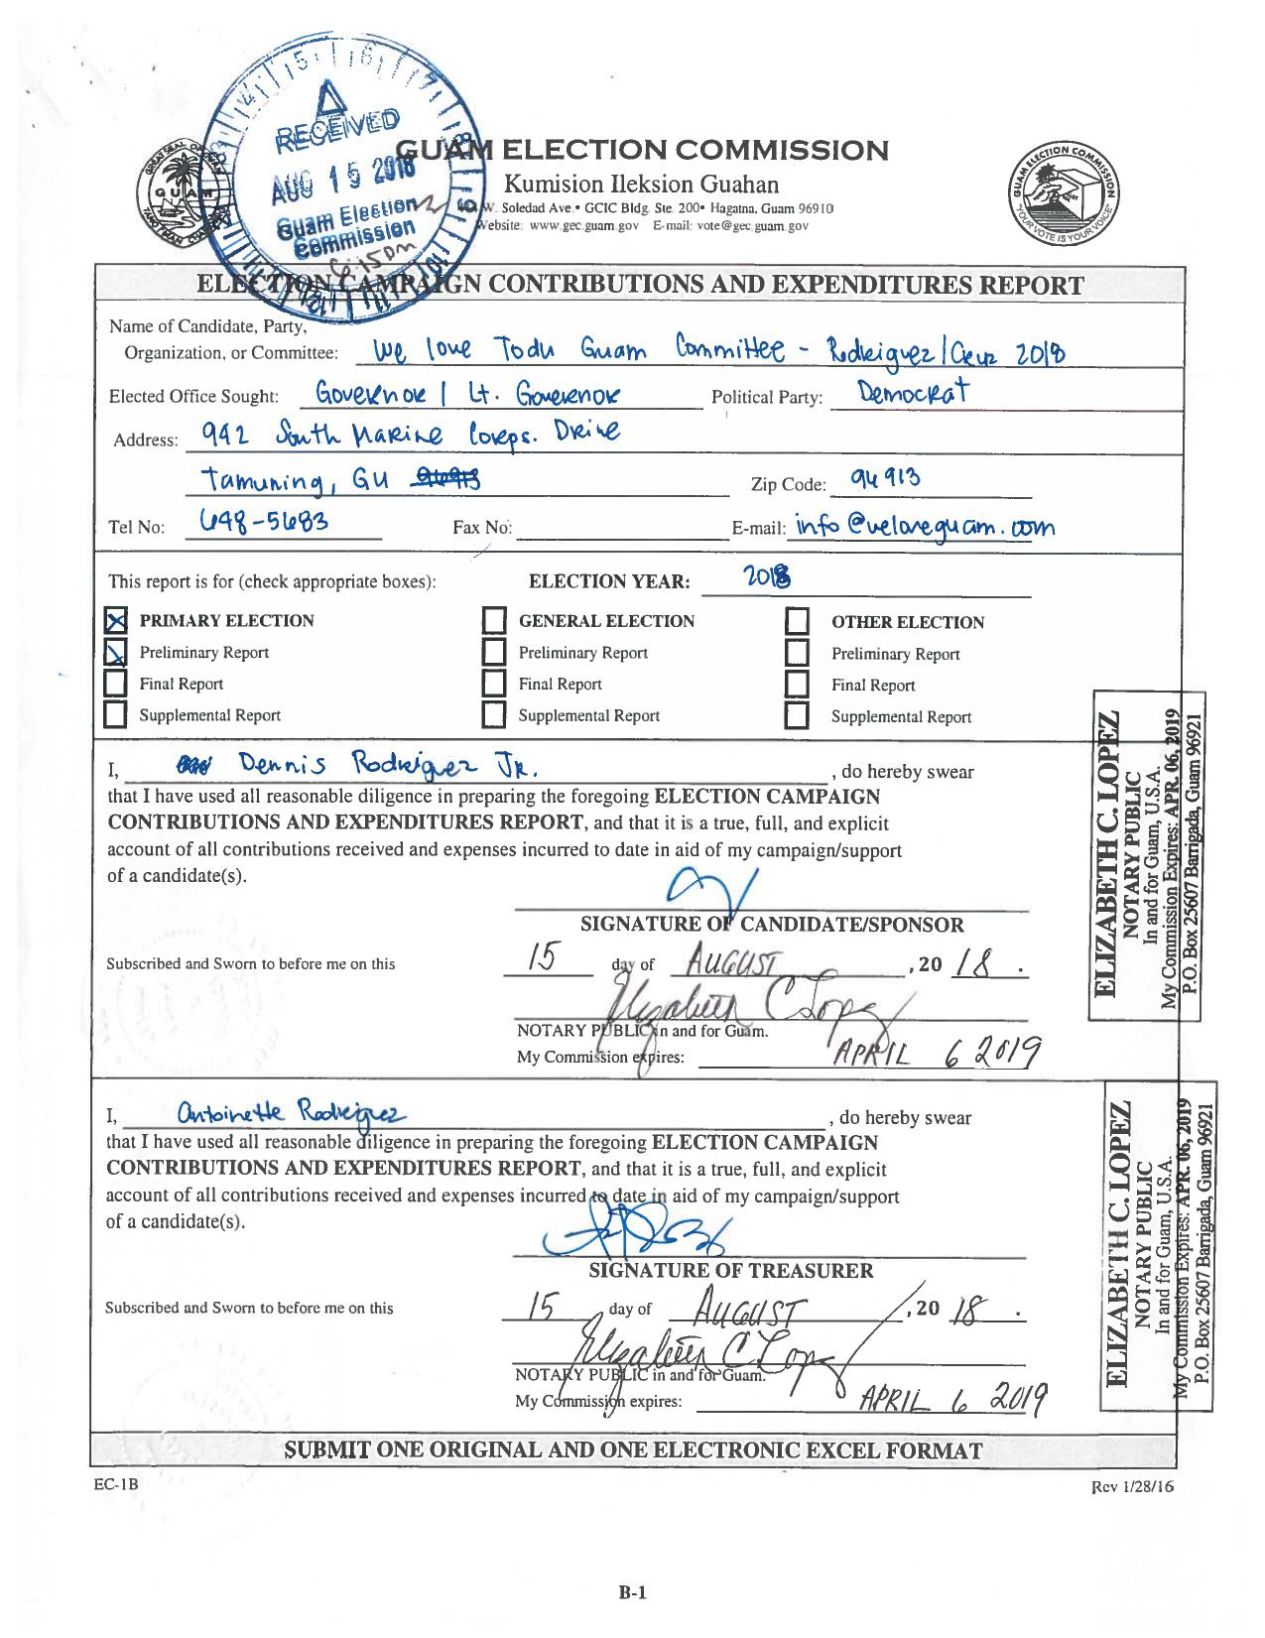 RECEIVED
AUG 15 2018
Guam Election
Commission
GUAM ELECTION COMMISSION
Kumision Ileksion Guahan
W. Soledad Ave. • GCIC Bldg. Ste. 200 • Hagatna, Guam 96910
Website: www.gec.guam.gov E-mail: vote@gec.guam.gov
ELECTION CAMPAIGN CONTRIBUTIONS AND EXPENDITURES REPORT
Name of Candidate, Party,
Organization, or Committee: We love Todu Guam Committee - Rodriguez/Cruz 2018
Elected Office Sought: Governor / Lt. Governor Political Party: Democrat
Address: 942 South Marine Corps. Drive
Tamuning, GU Zip Code: 96913
Tel No: 648-5683 Fax No: E-mail: info@weloveguam.com
This report is for (check appropriate boxes): ELECTION YEAR: 2018
PRIMARY ELECTION GENERAL ELECTION OTHER ELECTION
Preliminary Report Preliminary Report Preliminary Report
Final Report Final Report Final Report
Supplemental Report Supplemental Report Supplemental Report
I, Dennis Rodriguez Jr., do hereby swear
that I have used all reasonable diligence in preparing the foregoing ELECTION CAMPAIGN
CONTRIBUTIONS AND EXPENDITURES REPORT, and that it is a true, full, and explicit
account of all contributions received and expenses incurred to date in aid of my campaign/support
of a candidate(s).
SIGNATURE OF CANDIDATE/SPONSOR
Subscribed and Sworn to before me on this 15 day of AUGUST, 20 18.
Elizabeth C Lopez
NOTARY PUBLIC in and for Guam.
My Commission expires: APRIL 6 2019
ELIZABETH C. LOPEZ
NOTARY PUBLIC
In and for Guam, U.S.A.
My Commission Expires: APR. 06, 2019
P.O. Box 25607 Barrigada, Guam 96921
I, Antoinette Rodriguez, do hereby swear
that I have used all reasonable diligence in preparing the foregoing ELECTION CAMPAIGN
CONTRIBUTIONS AND EXPENDITURES REPORT, and that it is a true, full, and explicit
account of all contributions received and expenses incurred to date in aid of my campaign/support
of a candidate(s).
SIGNATURE OF TREASURER
Subscribed and Sworn to before me on this 15 day of AUGUST, 20 18.
Elizabeth C Lopez
NOTARY PUBLIC in and for Guam.
My Commission expires: APRIL 6 2019
ELIZABETH C. LOPEZ
NOTARY PUBLIC
In and for Guam, U.S.A.
My Commission Expires: APR. 06, 2019
P.O. Box 25607 Barrigada, Guam 96921
SUBMIT ONE ORIGINAL AND ONE ELECTRONIC EXCEL FORMAT
EC-1B Rev 1/28/16
B-1